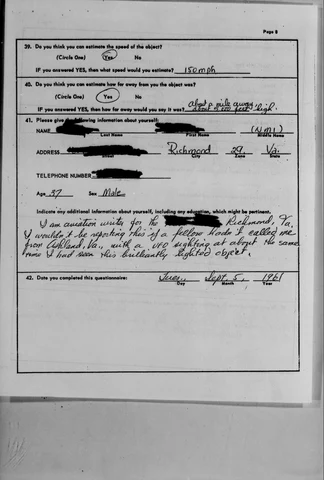 Page 8
39. Do you think you can estimate the speed of the object?
(Circle One) Yes No
IF you answered YES, then what speed would you estimate? 150 mph
40. Do you think you can estimate how far away from you the object was?
(Circle One) Yes No
IF you answered YES, then how far away would you say it was? about a mile away,
about feet high.
41. Please give the following information about yourself:
NAME (NMI)
Last Name First Name Middle Name
ADDRESS Richmond 29 Va.
Street City Zone State
TELEPHONE NUMBER
Age 37 Sex Male
Indicate any additional information about yourself, including any education, which might be pertinent.
I am aviation writer for the Richmond, Va.
I wouldn't be reporting this if a fellow hadn't called me
from Ashland, Va., with a UFO sighting at about the same
time I had seen this brilliantly lighted object.
42. Date you completed this questionnaire: Tues., Sept. 5, 1961
Day Month Year